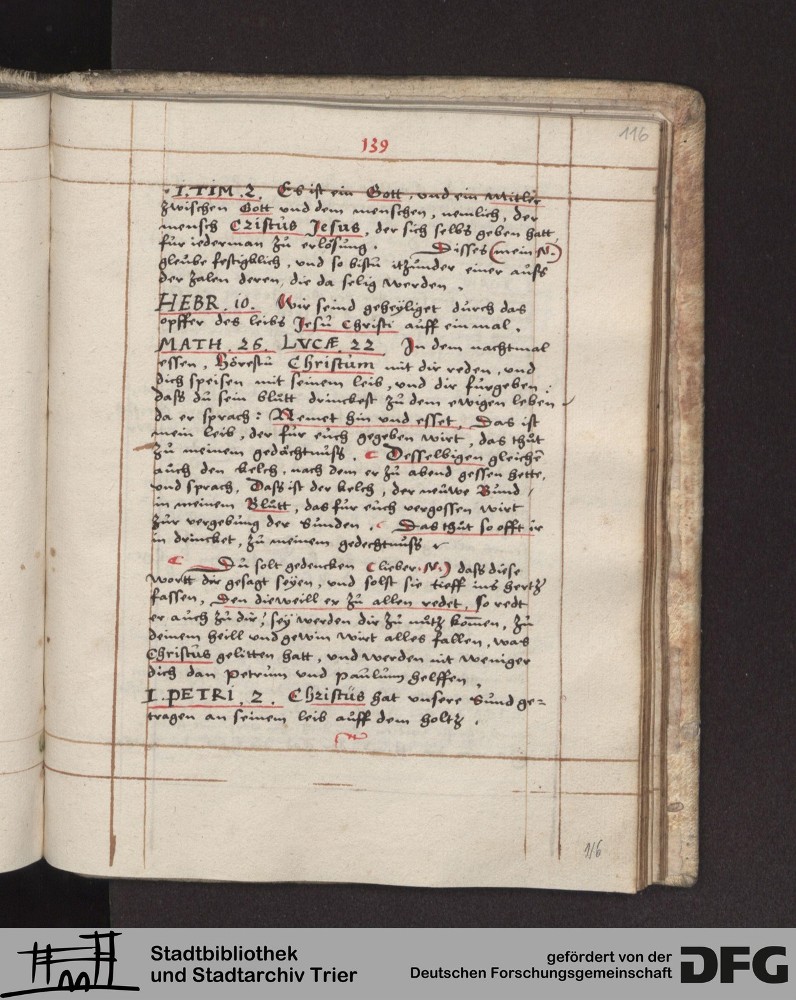 116
139
. I. TIM. 2. Es ist ein Gott, und ein Mitler
zwischen Gott und dem menschen, nemlich, der
mensch Cristus Jesus, der sich selbs geben hatt
für iederman zu erlösung. Disses (mein N.)
gleube festigklich, und so bistu itzunder einer auss
der zalen deren, die da selig werden.
HEBR. 10. Wir seind geheyliget durch das
opffer des leibs Jesu Christi auff ein mal.
MATH. 26. LVCÆ. 22 In dem nachtmal
essen, Hörestu Christum mit dir reden, und
dich speisen mit seinem leib, und dir fürgeben:
dass du sein blutt drinckest zu dem ewigen leben
da er sprach: Nemet hin und esset, Das ist
mein leib, der für euch gegeben wirt, das thut
zu meinem gedächtnuss. Desselbigen gleichē
auch den kelch, nach dem er zu abend gessen hette,
und sprach, Dass ist der kelch, der neuwe Bund /
in meinem Blutt, das für euch vergossen wirt
zur vergebung der sunden. Das thut so offt ir
in drincket, zu meinem gedechtnuss
Du solt gedencken (lieber N.) dass diese
wortt dir gesagt seyen, und solst sie tieff ins hertz
fassen, Den dieweill er zu allen redet, so redt
er auch zu dir / sey werden dir zu nutz kom̄en, zu
deinem heill und gewin wirt alles fallen, was
Christus gelitten hatt, und werden nit weniger
dich dan Petrum und Paulum helffen.
I. PETRI. 2. Christus hat unsere Sund ge=
tragen an seinem leib auff dem holtz.
116
Stadtbibliothek
und Stadtarchiv Trier
gefördert von der
Deutschen Forschungsgemeinschaft
DFG